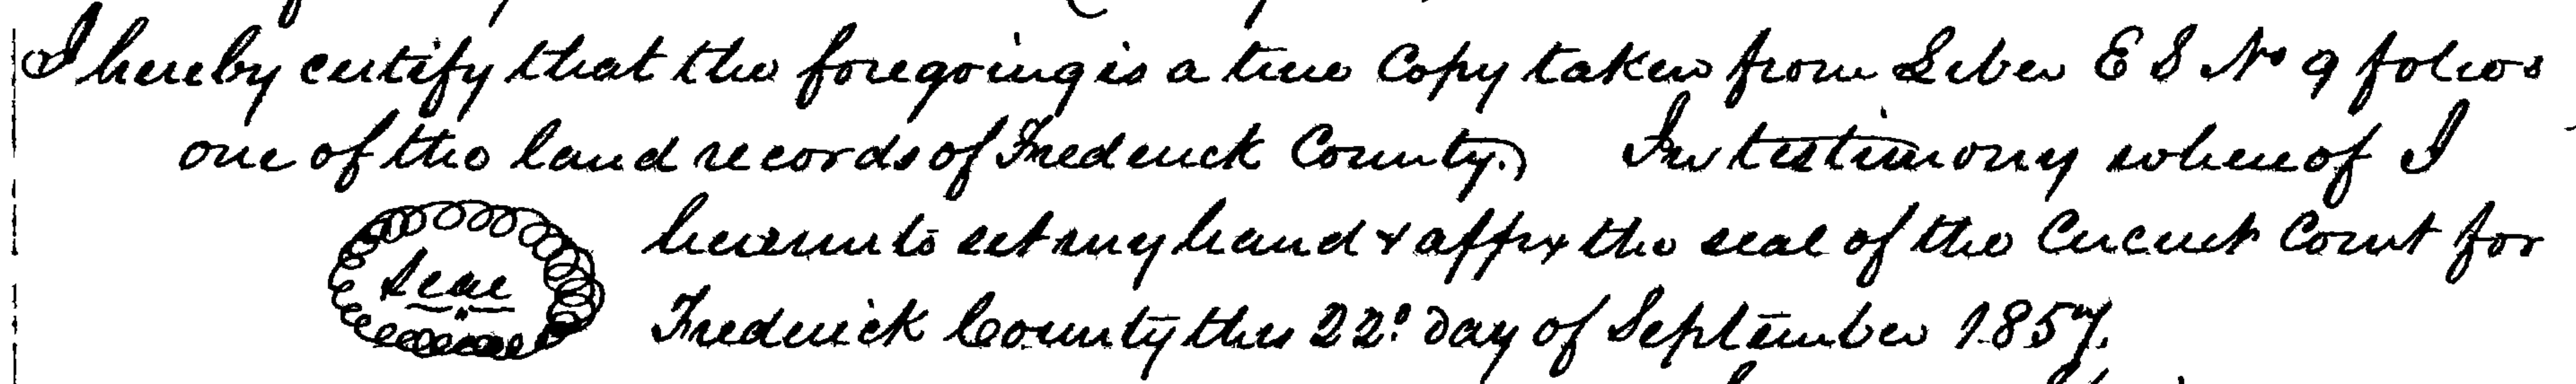 I hereby certify that the foregoing is a true Copy taken from Liber E S No 9 folios
one of the land records of Frederick County. In testimony whereof I
hereunto set my hand & affix the seal of the Circuit Court for
Seal
Frederick County this 22d day of September 1857.